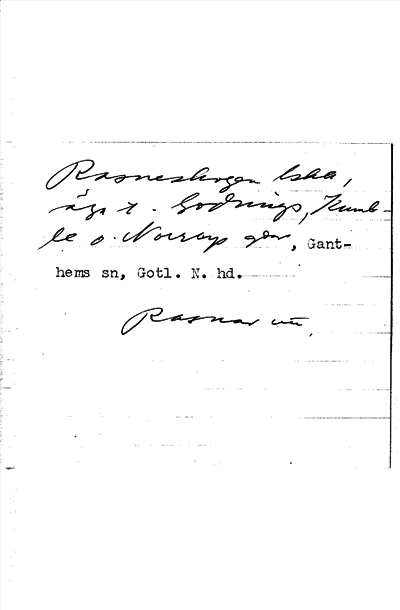 Rasneskogen lska,
äga t. Godrings, Kumb-
le o. Norrbys gdr, Gant-
hems sn, Gotl. N. hd.
Rasnar